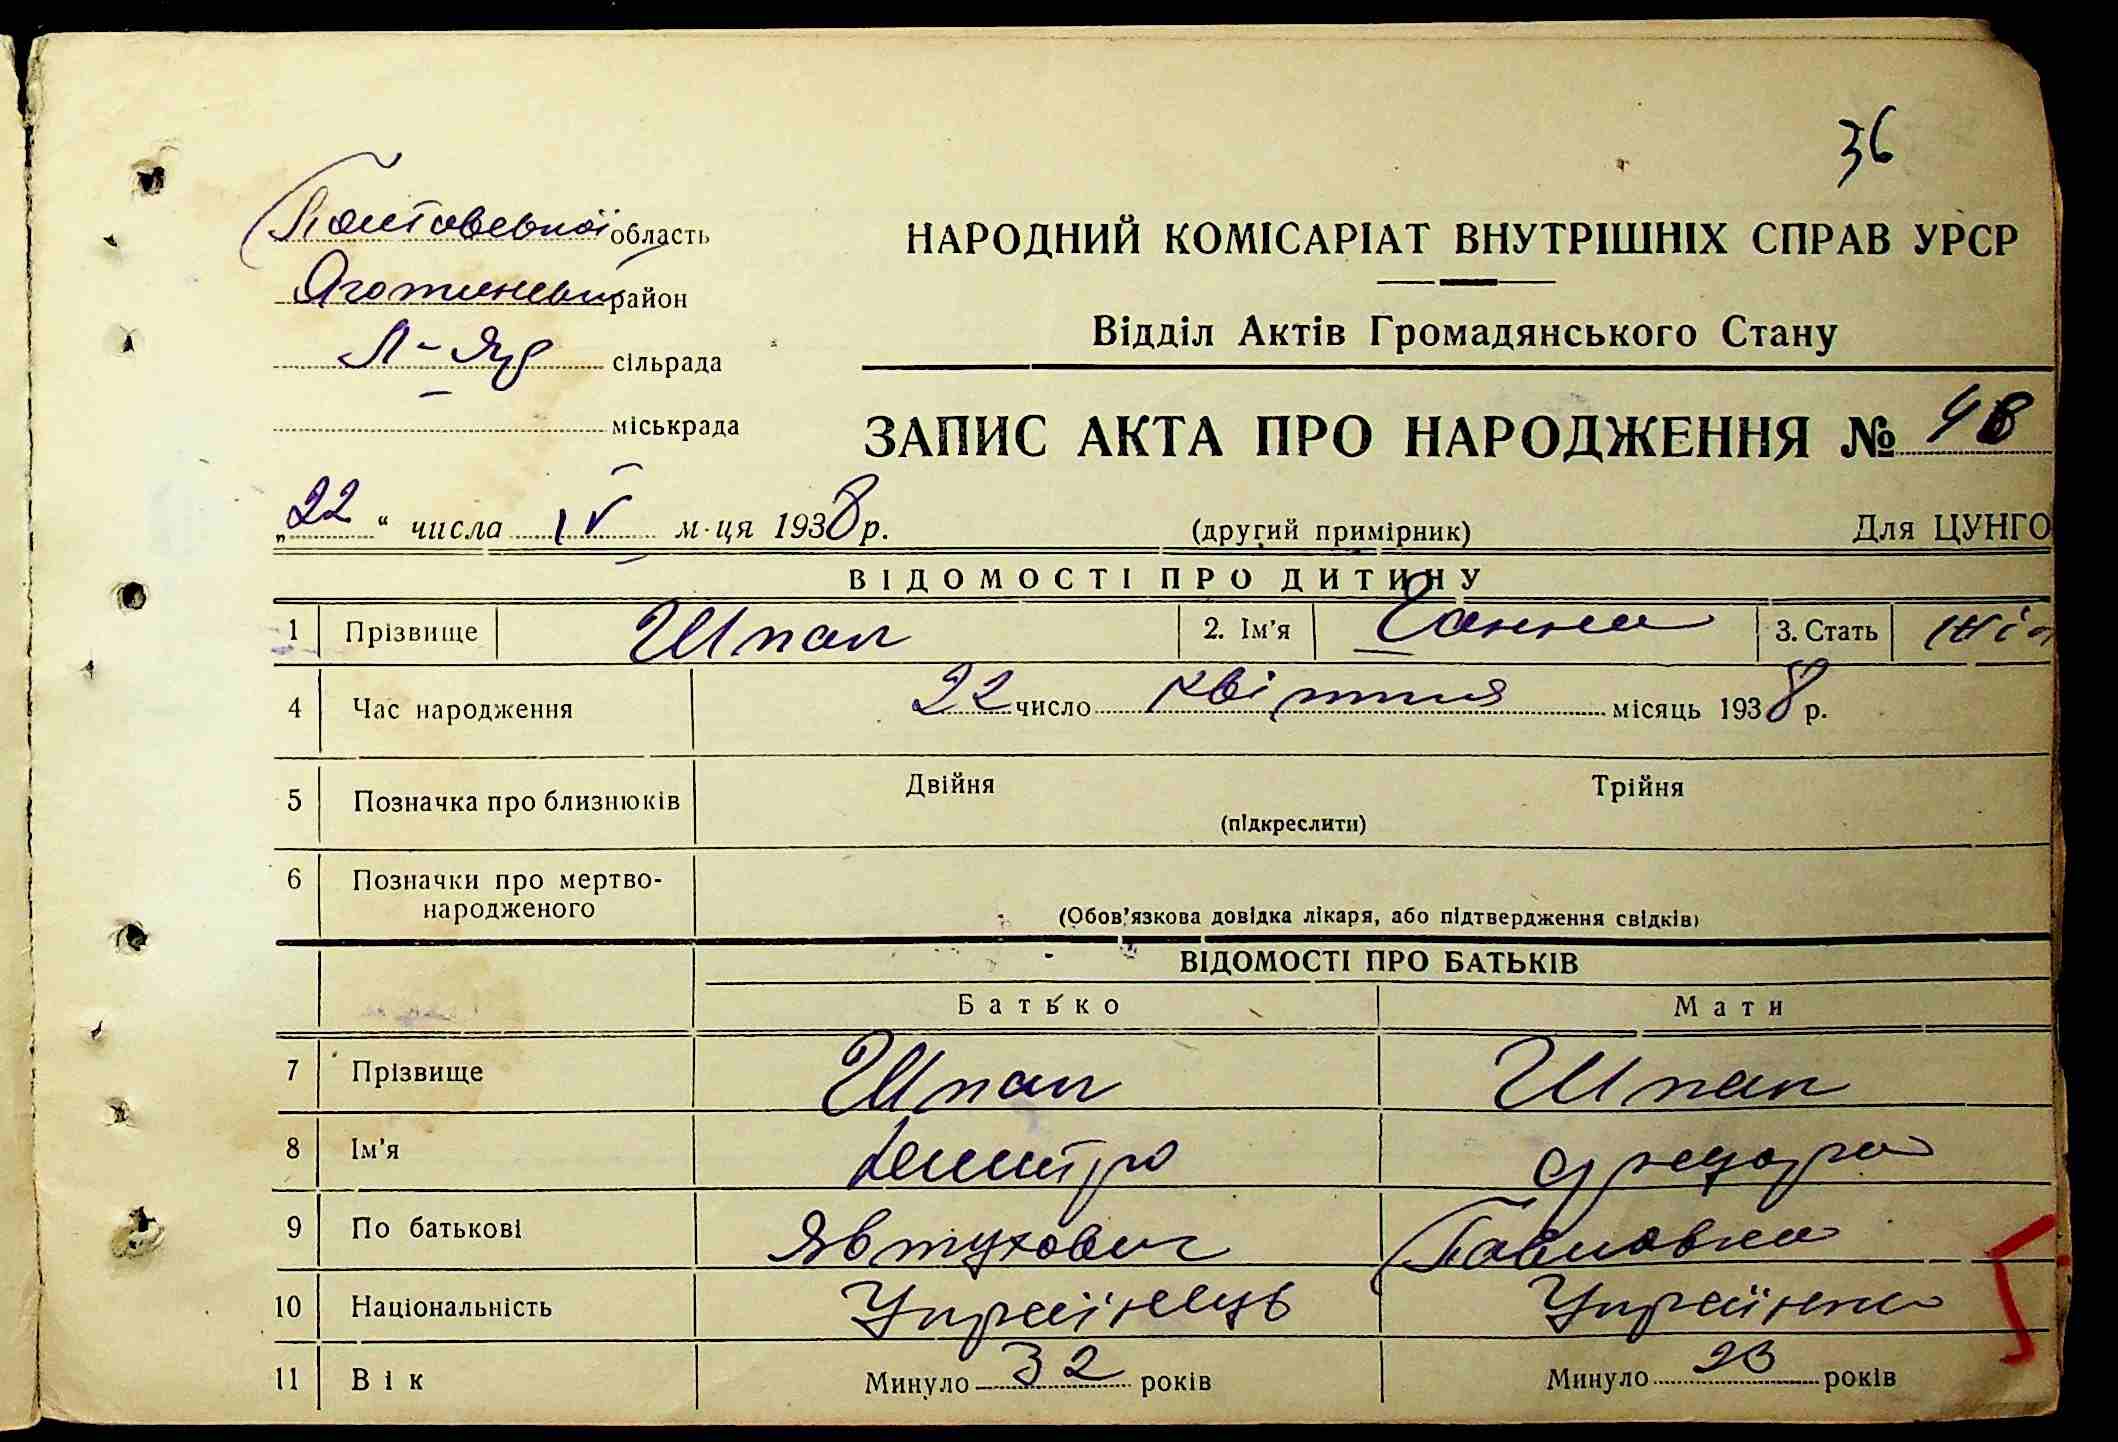 36
Полтавської область
НАРОДНИЙ КОМІСАРІАТ ВНУТРІШНІХ СПРАВ УРСР
Яготинськи район
Відділ Актів Громадянського Стану
сільрада
міськрада
ЗАПИС АКТА ПРО НАРОДЖЕННЯ №
„22“ числа IV м-ця 1938 р. (другий примірник) Для ЦУНГО
ВІДОМОСТІ ПРО ДИТИНУ
1 Прізвище Шпак 2. Ім'я Ганна 3. Стать жін
4 Час народження 22 число квітня місяць 1938 р.
5 Позначка про близнюків Двійня Трійня
(підкреслити)
6 Позначки про мертво-
народженого
(Обов'язкова довідка лікаря, або підтвердження свідків)
ВІДОМОСТІ ПРО БАТЬКІВ
Батько Мати
7 Прізвище Шпак Шпак
8 Ім'я Дмитро
9 По батькові Явтухович Павловна
10 Національність Українець Українка
11 Вік Минуло 32 років Минуло 23 років